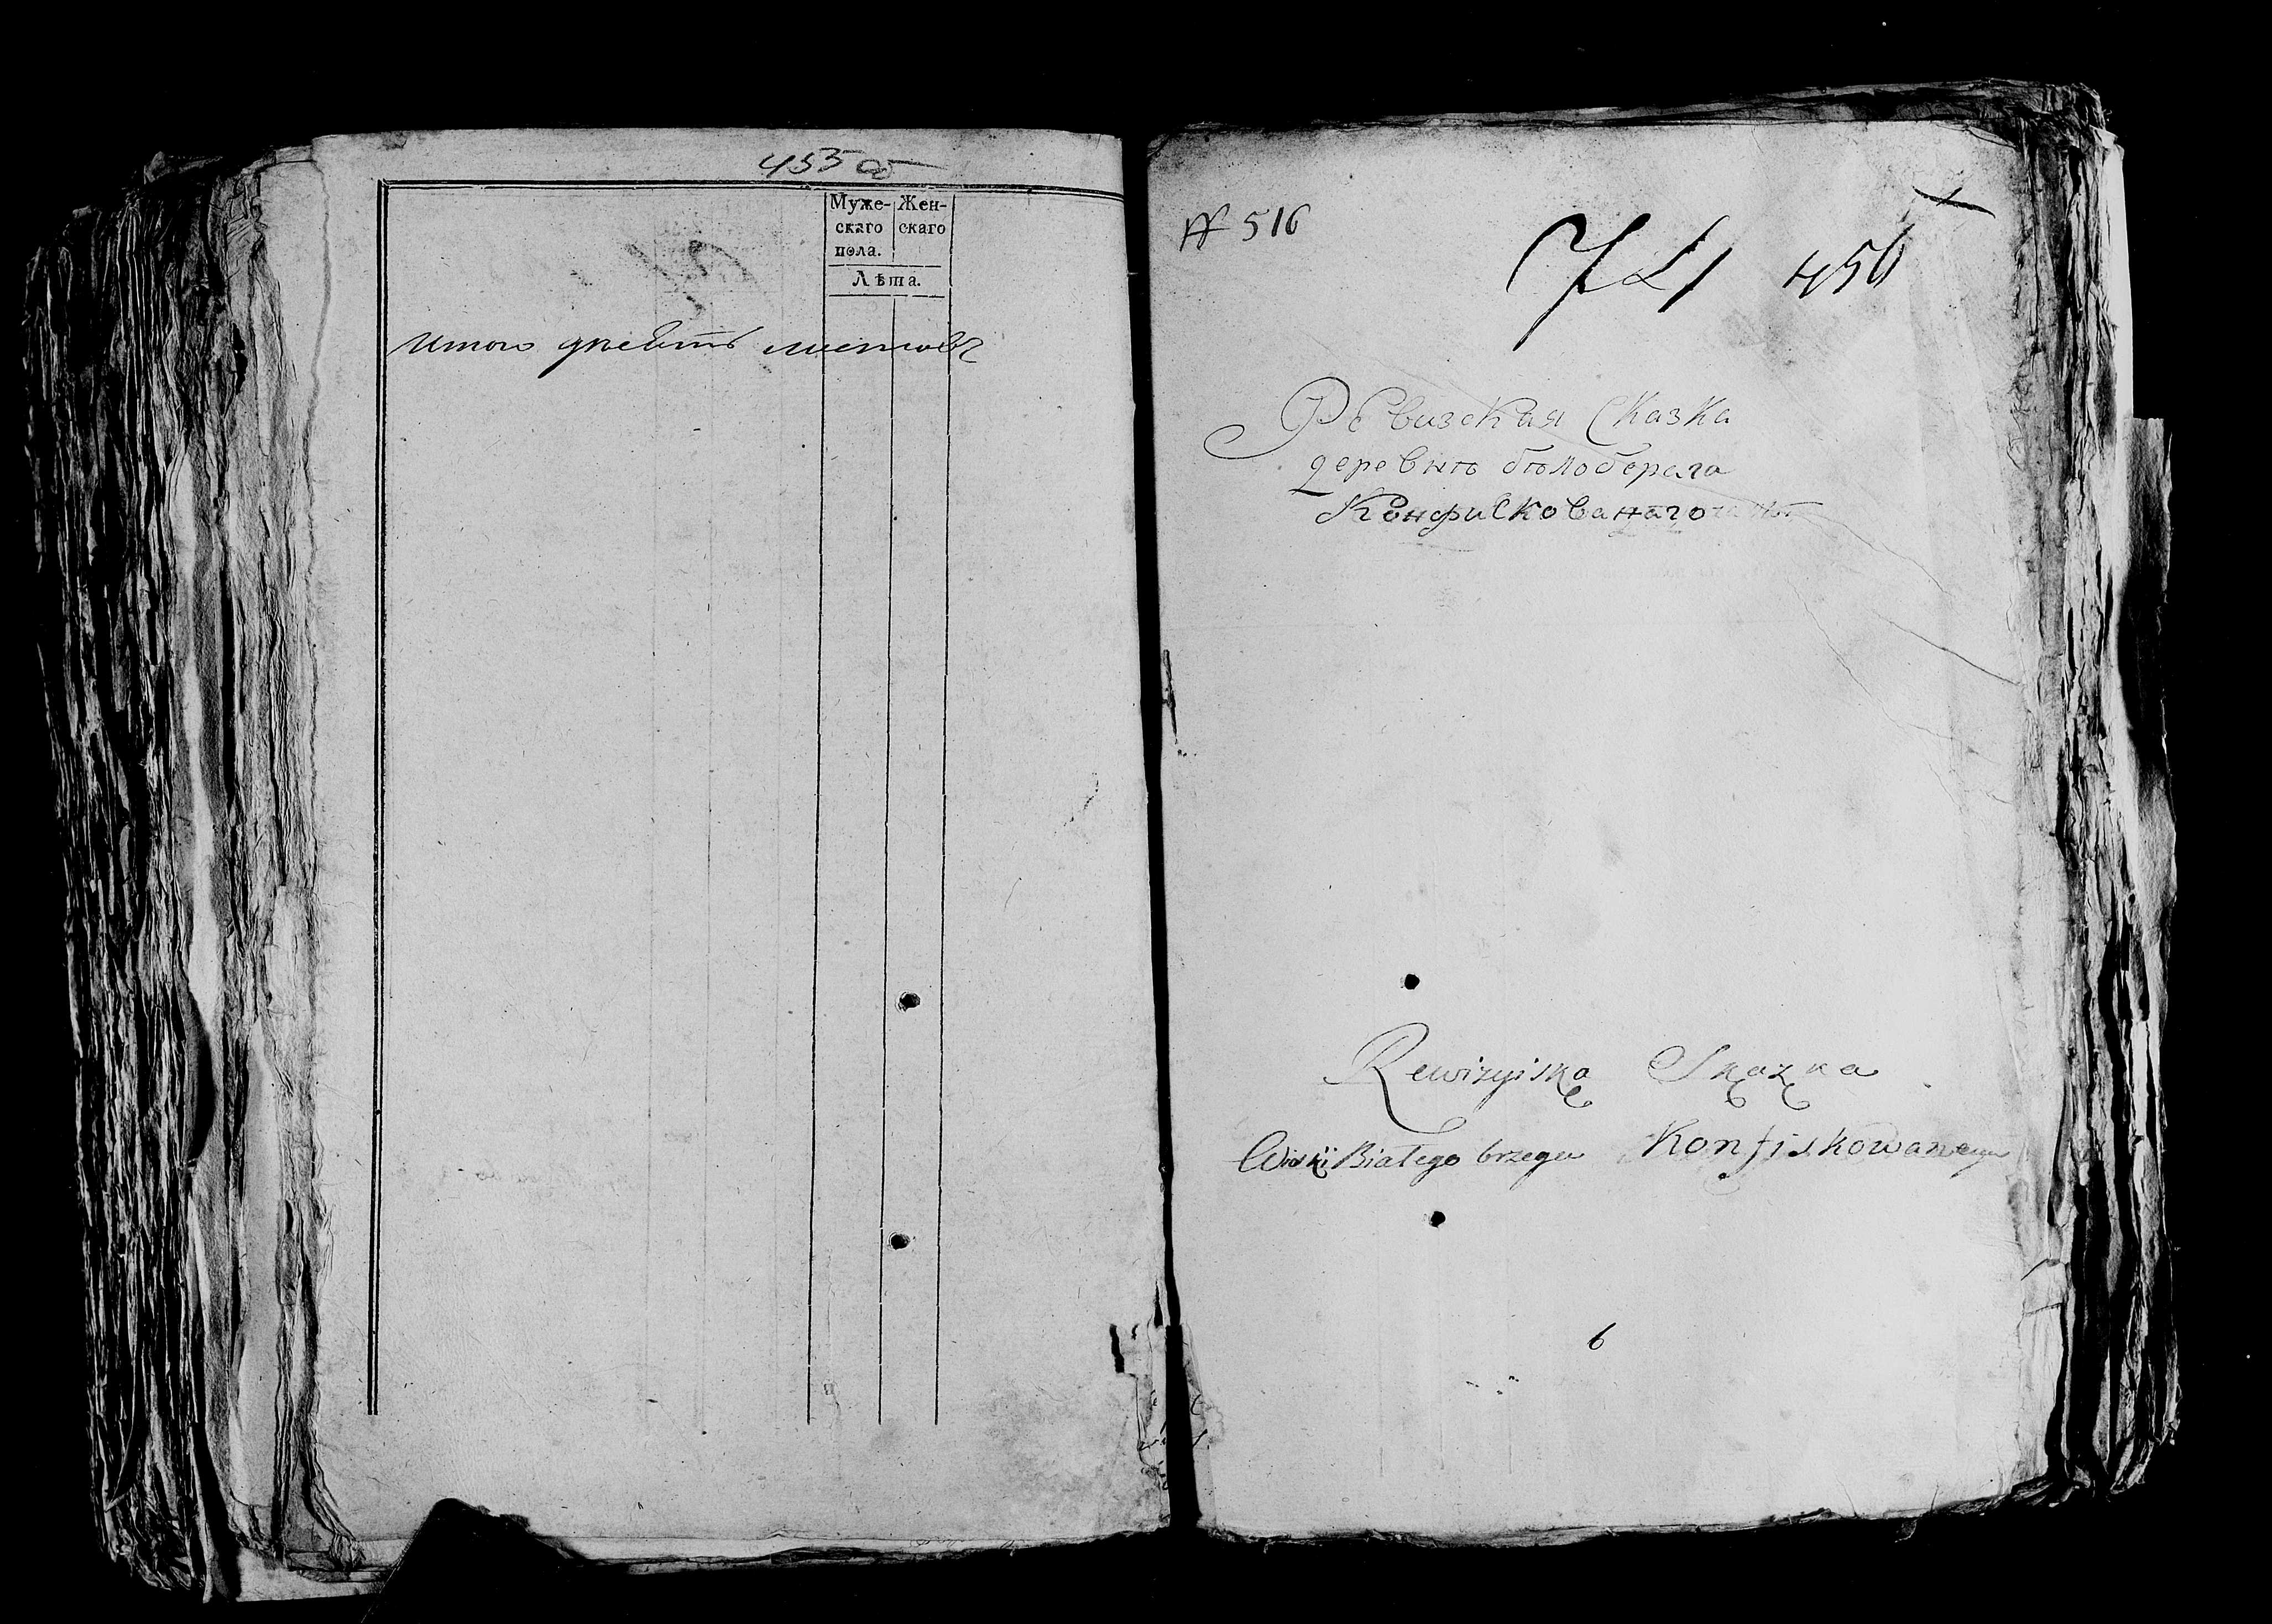 455 об
Муже- Жен-
скаго скаго
пола.
Лѣта.
итого девять листовъ
№ 516
456
Ревизская Сказка
деревнѣ бѣлоберега
Конфискованаго
Rewizyiska Skazka
Wioski Białego brzegu Konfiskowanego
6